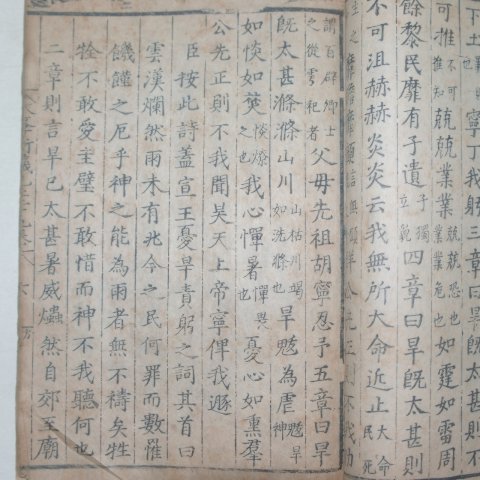 下土寧丁我躬三章曰旱旣太甚則
可推不可推知也兢兢業業兢兢恐也業業危也如霆如雷周
餘黎民靡有孑遺孑獨立貌四章曰旱旣太甚則
不可沮赫赫炎炎云我無所大命近止大命民死
靡瞻靡顧不我助
謂百辟卿士之從雩祀者父母先祖胡寧忍予五章曰旱
旣太甚滌滌山川山枯川竭如洗滌也旱魃為虐魃旱神
如惔如焚惔燎也我心憚暑憚畏也憂心如熏羣
公先正則不我聞昊天上帝寧俾我遯
臣按此詩蓋宣王憂旱責躬之詞其首曰
雲漢爛然雨未有兆今之民何罪而數罹
饑饉之厄乎神之能為雨者無不禱矣牲
牷不敢愛圭璧不敢惜而神不我聽何也
二章則言旱已太甚暑威爞然自郊至廟